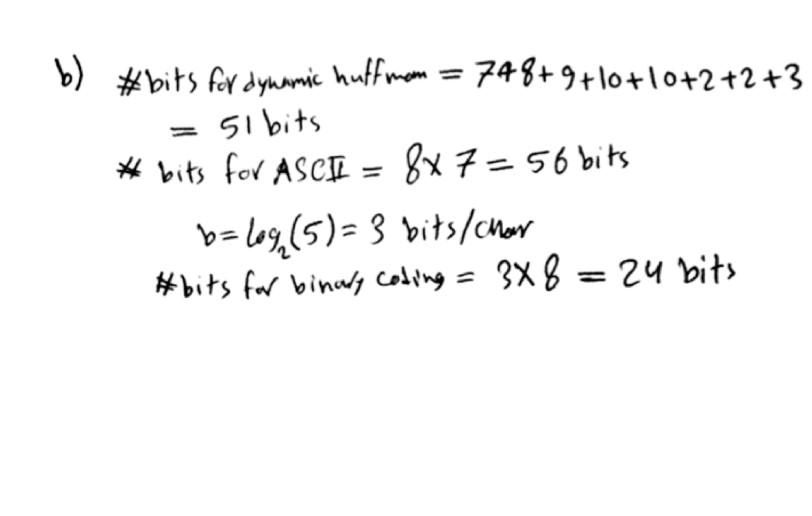 b) #bits for dynamic huffman = 748+9+10+10+2+2+3
= 51 bits
# bits for ASCII = 8x7 = 56 bits
b=log₂(5)= 3 bits/char
#bits for binary coding = 3X8 = 24 bits